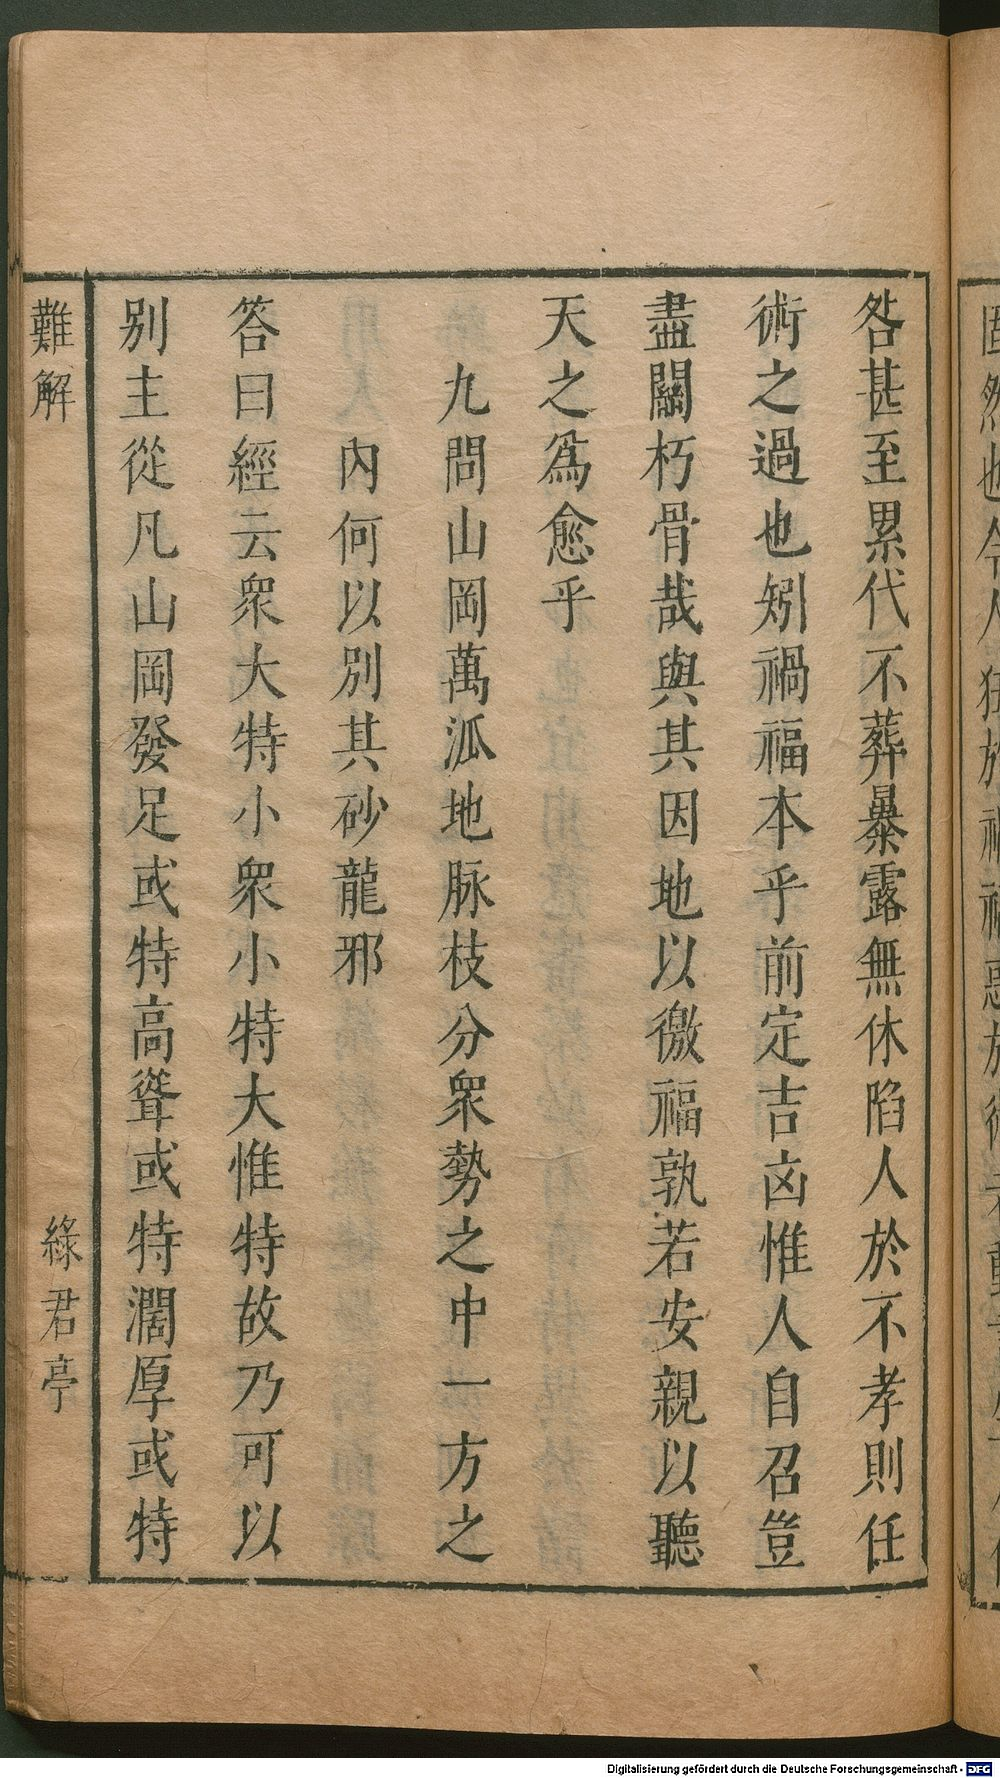 咎甚至累代不葬暴露無休陷人於不孝則任
術之過也矧禍福本乎前定吉凶惟人自召豈
盡關朽骨哉與其因地以徼福孰若安親以聽
天之爲愈乎
九問山岡萬派地脉枝分衆勢之中一方之
內何以別其砂龍邪
答曰經云衆大特小衆小特大惟特故乃可以
別主從凡山岡發足或特高聳或特濶厚或特
難解
綠君亭
Digitalisierung gefördert durch die Deutsche Forschungsgemeinschaft - DFG